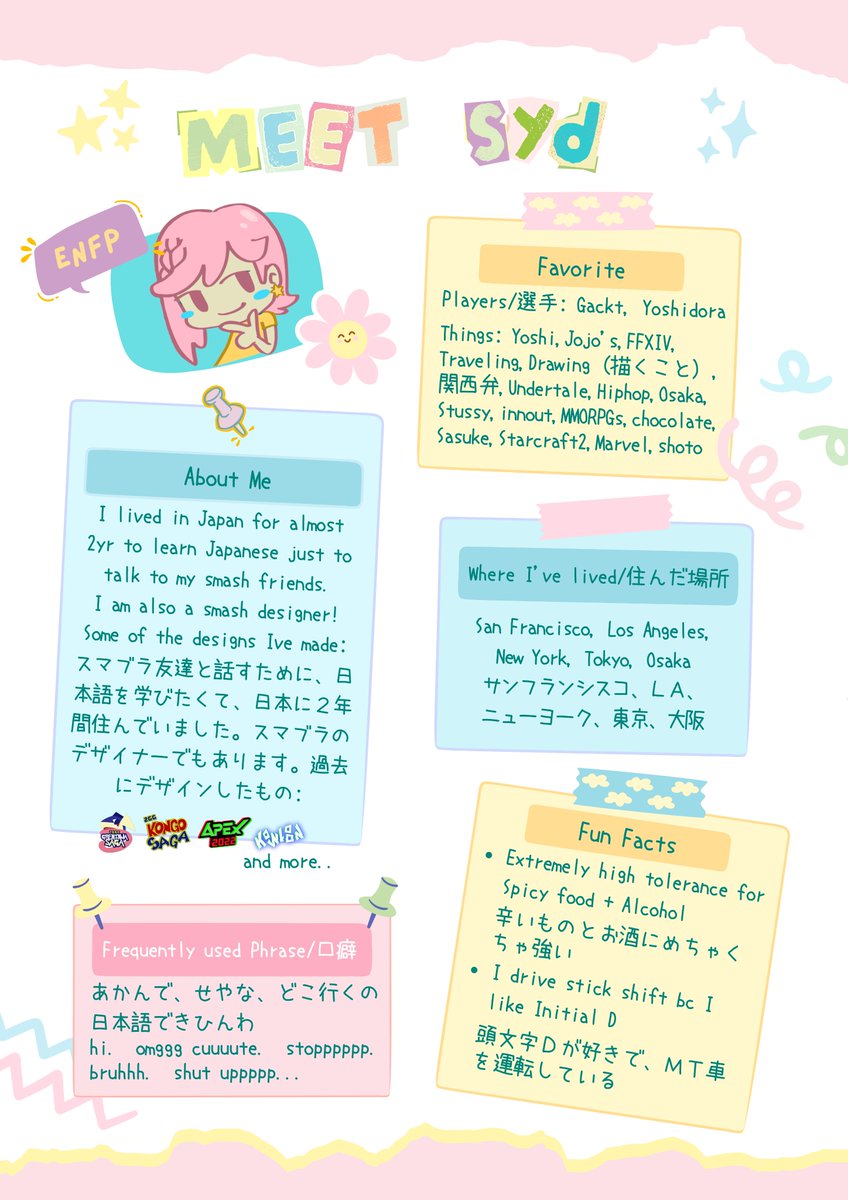 MEET SYd
ENFP
Favorite
Players/選手: Gackt, Yoshidora
Things: Yoshi, Jojo's, FFXIV,
Traveling, Drawing (描くこと),
関西弁, Undertale, Hiphop, Osaka,
Stussy, innout, MMORPGs, chocolate,
Sasuke, Starcraft2, Marvel, shoto
About Me
I lived in Japan for almost
2yr to learn Japanese just to
talk to my smash friends.
I am also a smash designer!
Some of the designs Ive made:
スマブラ友達と話すために、日
本語を学びたくて、日本に２年
間住んでいました。スマブラの
デザイナーでもあります。過去
にデザインしたもの:
KONGO
SAGA
APEX
2022
and more..
Where I've lived/住んだ場所
San Francisco, Los Angeles,
New York, Tokyo, Osaka
サンフランシスコ、ＬＡ、
ニューヨーク、東京、大阪
Frequently used Phrase/口癖
あかんで、せやな、どこ行くの
日本語できひんわ
hi. omggg cuuuute. stopppppp.
bruhhh. shut uppppp...
Fun Facts
• Extremely high tolerance for
Spicy food + Alcohol
辛いものとお酒にめちゃく
ちゃ強い
• I drive stick shift bc I
like Initial D
頭文字Ｄが好きで、ＭＴ車
を運転している